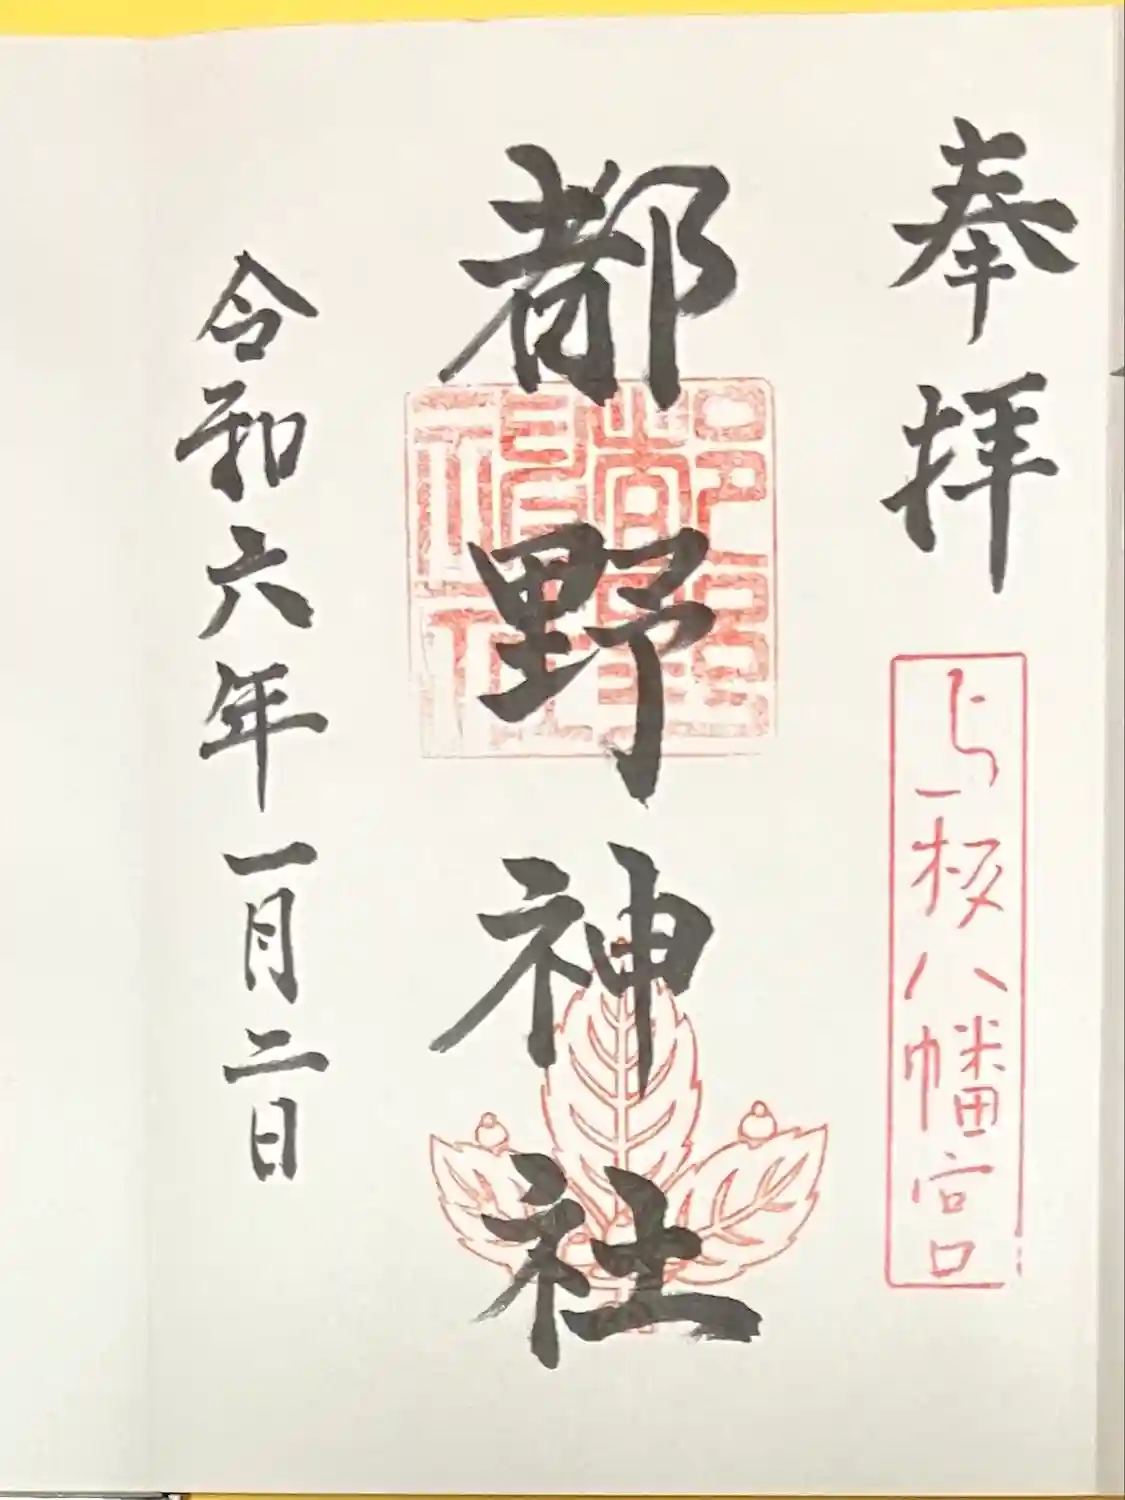 奉拝
与板八幡宮
都野神社
都野神社
令和六年一月二日